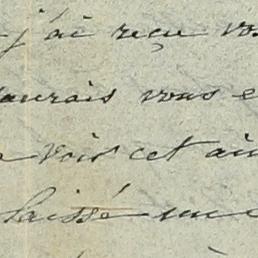 j'ai reçu vos
aurais vous e
voir cet ai
laissé une